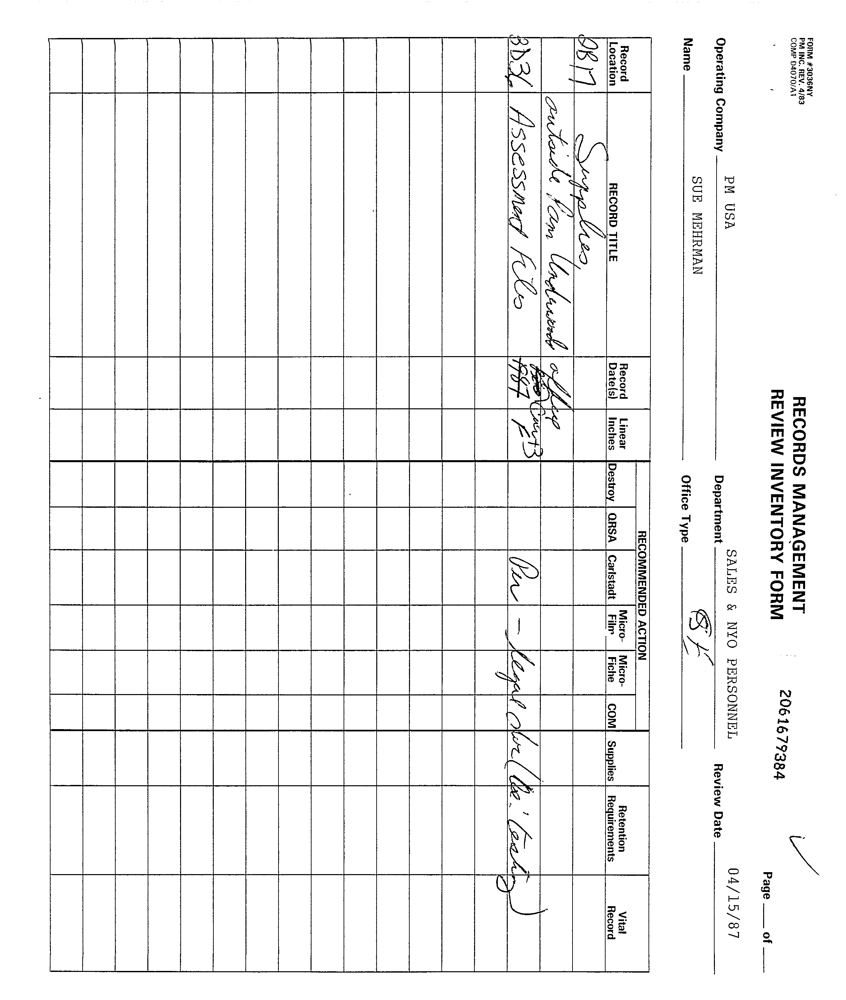 FORM #3036NY
PM INC. REV. 4/83
COMP D4070/A1
RECORDS MANAGEMENT
REVIEW INVENTORY FORM
2061679384
Page ___ of ___
Operating Company PM USA
Department SALES & NYO PERSONNEL
Review Date 04/15/87
Name SUE MEHRMAN
Office Type
RECOMMENDED ACTION
Record Location
RECORD TITLE
Record Date(s)
Linear Inches
Destroy
QRSA
Carlstadt
Micro-Film
Micro-Fiche
COM
Supplies
Retention Requirements
Vital Record
Supplies,
outside Pam Underwoods office
3D36 Assessment Files 1987
Per - legal